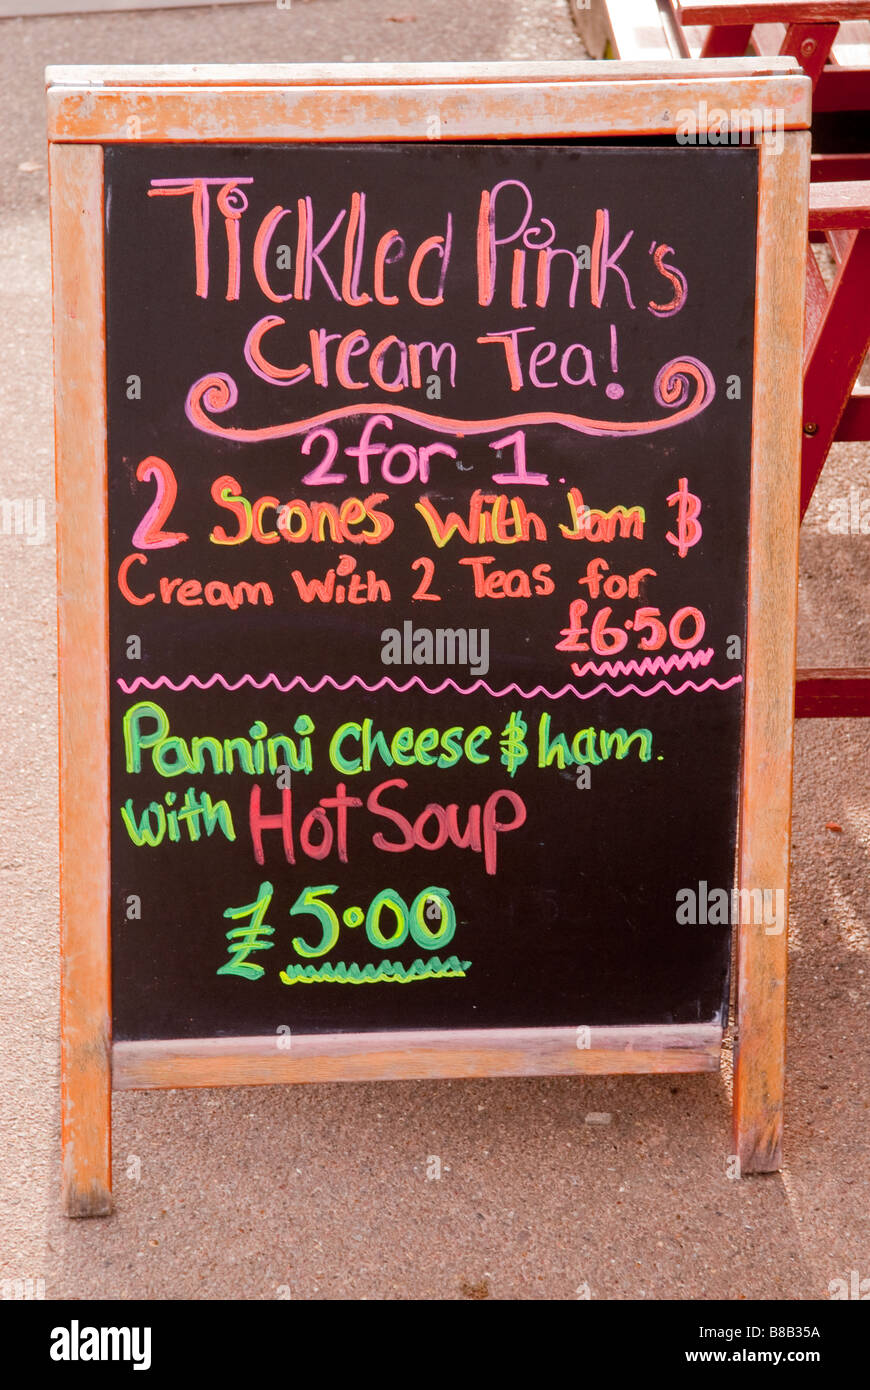 Tickled Pink's
Cream Tea!
2 for 1.
2 Scones with Jam &
Cream with 2 Teas for
£6.50
Pannini Cheese & ham.
with Hot Soup
£5.00
alamy
alamy stock photo
B8B35A
www.alamy.com